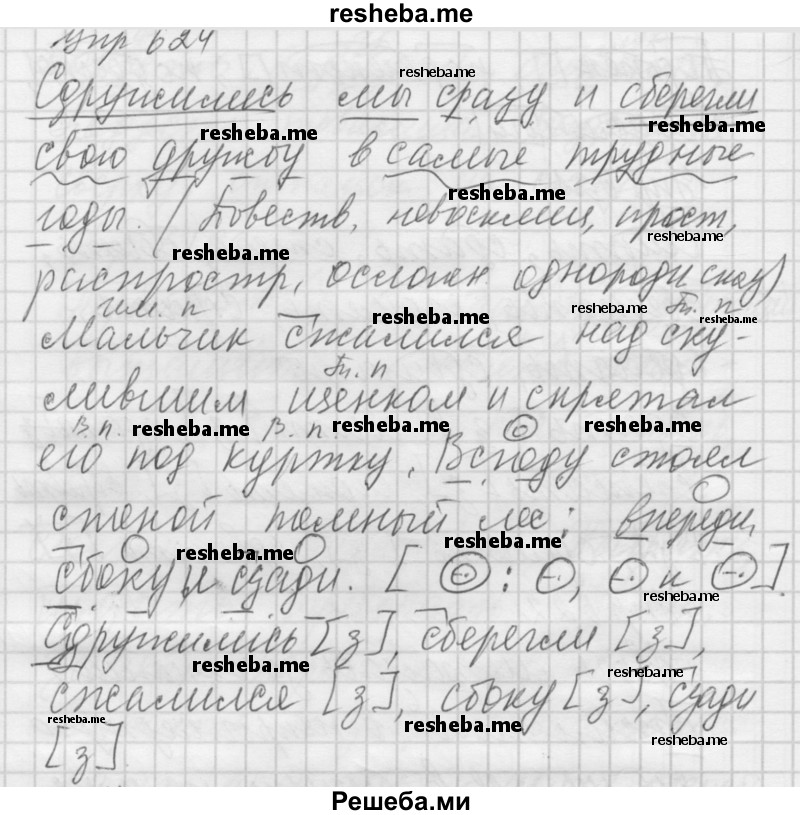 resheba.me
упр 624
resheba.me
Сдружились мы сразу и сберегли
resheba.me resheba.me
свою дружбу в самые трудные
resheba.me
годы. (Повеств, невосклиц, прост,
resheba.me resheba.me
распростр, осложн однородн сказ)
им. п resheba.me resheba.me Тв. п
Мальчик сжалился над ску-
resheba.me
Тв. п
лившим щенком и спрятал
В. п. resheba.me В. п. resheba.me resheba.me
его под куртку. Всюду стоял
стеной темный лес: впереди,
resheba.me resheba.me
сбоку и сзади. [ : , и ].
resheba.me
Сдружились [з], сберегли [з],
resheba.me resheba.me
сжалился [з], сбоку [з], сзади
resheba.me resheba.me
[з]. resheba.me
Решеба.ми